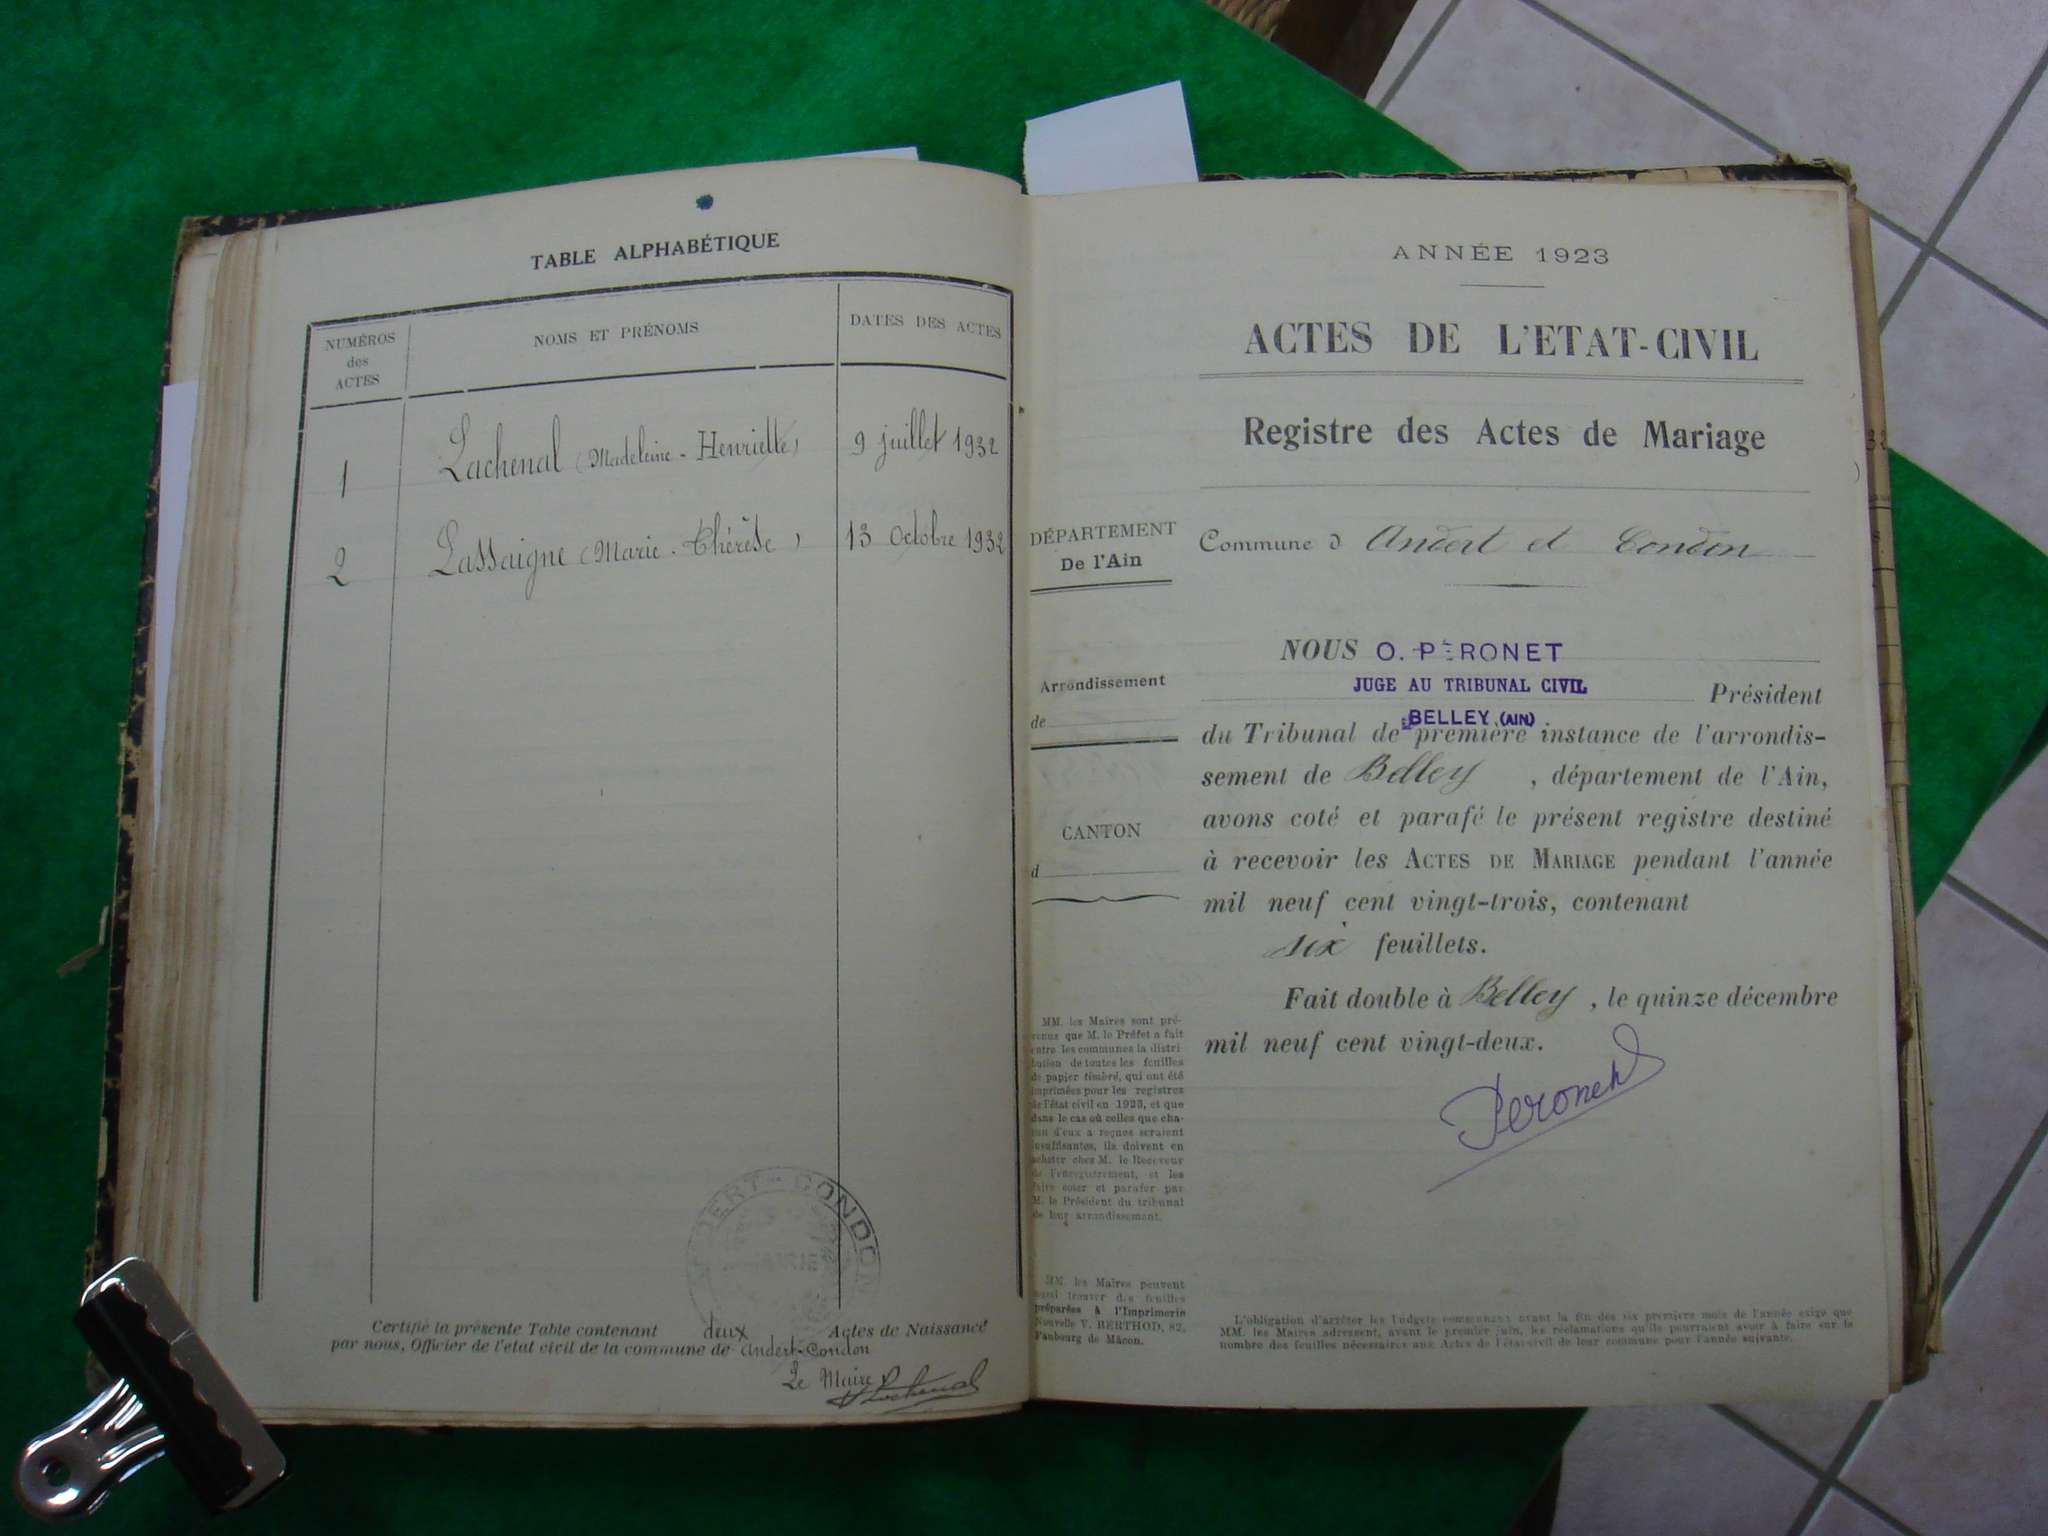 TABLE ALPHABÉTIQUE
NUMÉROS
des
ACTES
NOMS ET PRÉNOMS
DATES DES ACTES
1 Lachenal (Madeleine - Henriette) 9 juillet 1932
2 Lassaigne (Marie - Thérèse) 13 Octobre 1932
ANDERT - CONDON
MAIRIE
Certifié la présente Table contenant deux Actes de Naissance
par nous, Officier de l'etat civil de la commune de Andert-Condon
Le Maire
Lachenal
ANNÉE 1923
ACTES DE L'ETAT-CIVIL
Registre des Actes de Mariage
DÉPARTEMENT
De l'Ain
Commune d Andert et Condon
Arrondissement
de
CANTON
d
NOUS O. PÉRONET
JUGE AU TRIBUNAL CIVIL Président
BELLEY (AIN)
du Tribunal de première instance de l'arrondis-
sement de Belley, département de l'Ain,
avons coté et parafé le présent registre destiné
à recevoir les ACTES DE MARIAGE pendant l'année
mil neuf cent vingt-trois, contenant
six feuillets.
Fait double à Belley, le quinze décembre
mil neuf cent vingt-deux.
Peronet
MM. les Maires sont pré-
venus que M. le Préfet a fait
entre les communes la distri-
bution de toutes les feuilles
de papier timbré, qui ont été
imprimées pour les registres
de l'état civil en 1923, et que
dans le cas où celles que cha-
cun d'eux a reçues seraient
insuffisantes, ils doivent en
acheter chez M. le Receveur
de l'enregistrement, et les
faire coter et parafer par
M. le Président du tribunal
de leur arrondissement.
MM. les Maires peuvent
aussi trouver des feuilles
préparées à l'Imprimerie
Nouvelle V. BERTHOD, 82,
Faubourg de Mâcon.
L'obligation d'arrêter les budgets communaux avant la fin des six premiers mois de l'année exige que
MM. les Maires adressent, avant le premier juin, les réclamations qu'ils pourraient avoir à faire sur le
nombre des feuilles nécessaires aux Actes de l'état-civil de leur commune pour l'année suivante.